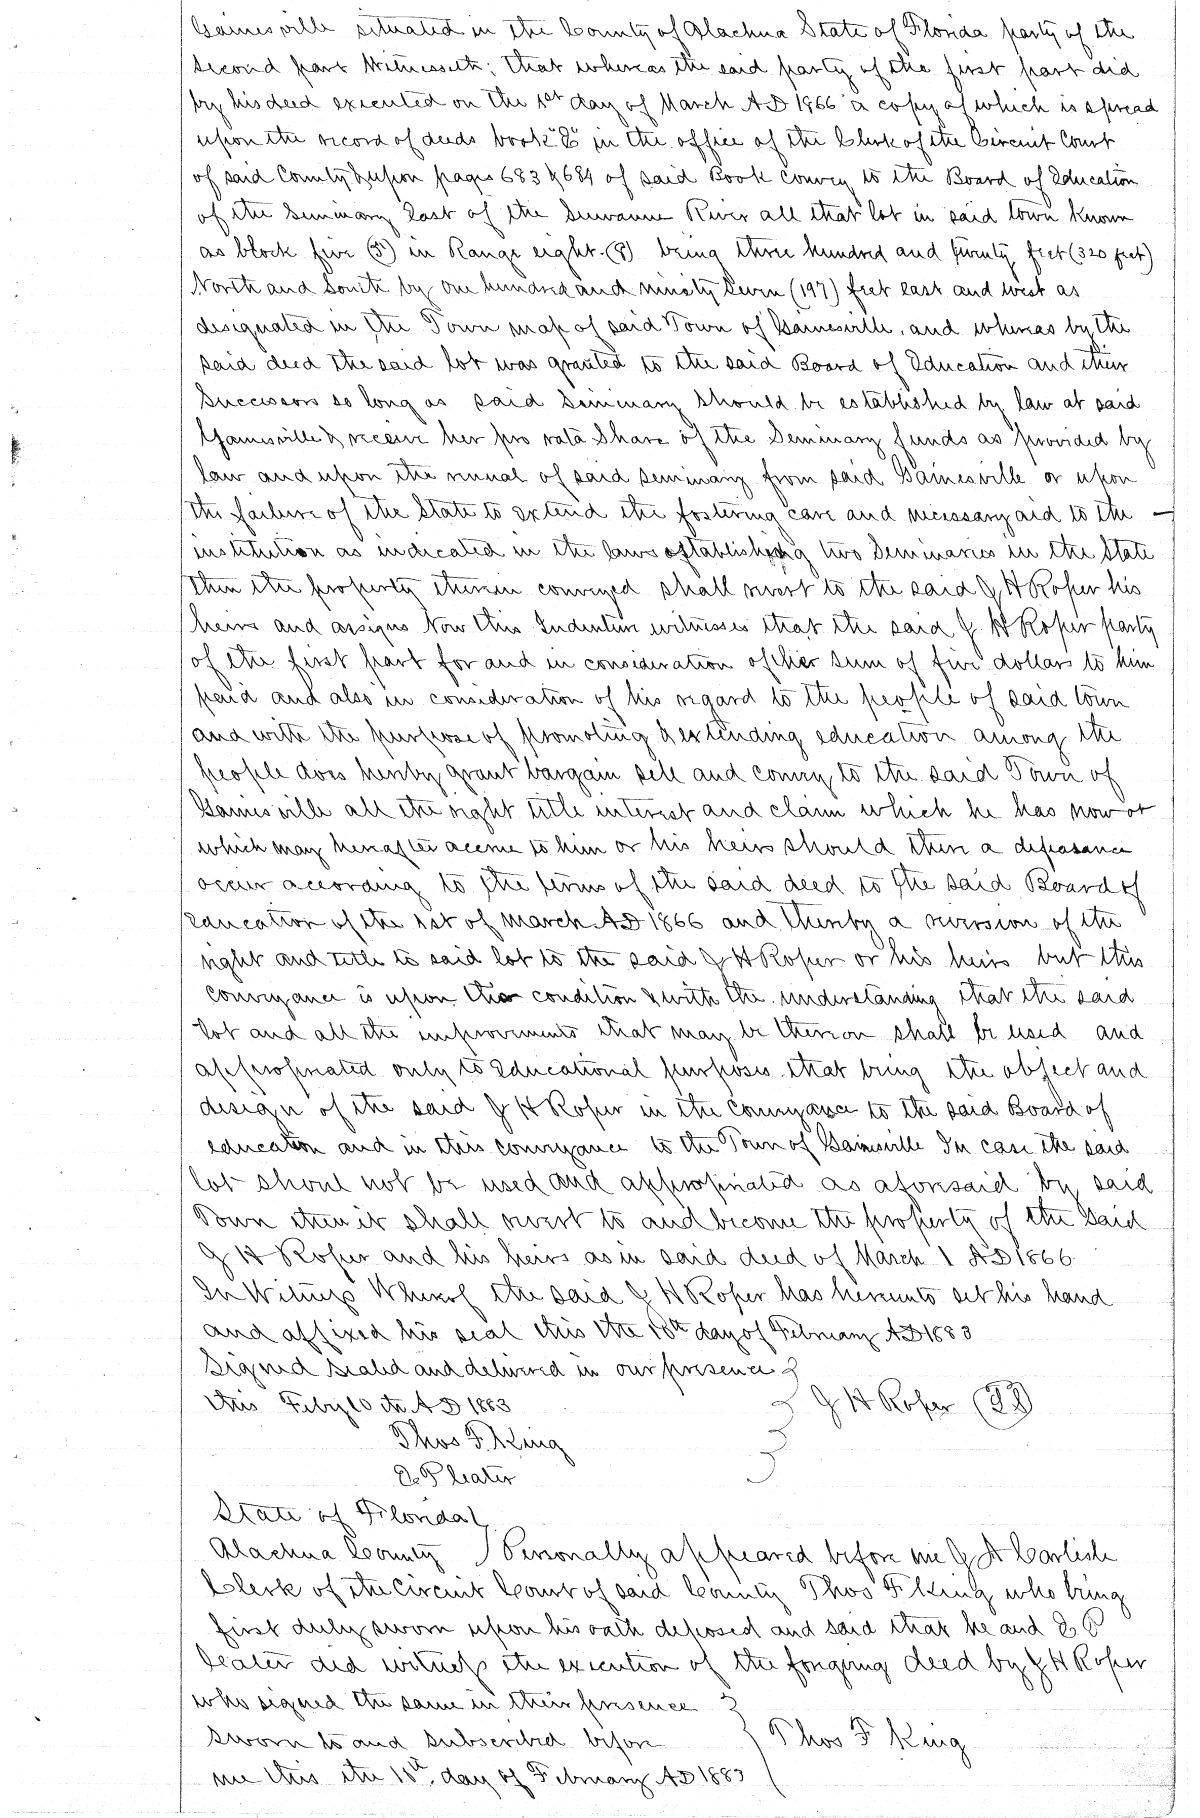 Gainesville situated in the County of Alachua State of Florida party of the
Second part Witnesseth; that whereas the said party of the first part did
by his deed executed on the 1st day of March AD 1866 a copy of which is spread
upon the record of deeds book "E" in the office of the Clerk of the Circuit Court
of said County & upon pages 683 & 684 of said Book convey to the Board of Education
of the Seminary East of the Suwannee River all that lot in said town known
as block five (5) in Range eight (8) being three hundred and twenty feet (320 feet)
North and South by one hundred and ninety Seven (197) feet east and west as
designated in the Town map of said Town of Gainesville, and whereas by the
said deed the said lot was granted to the said Board of Education and their
Successors so long as said Seminary should be established by law at said
Gainesville & receive her pro rata Share of the Seminary funds as provided by
law and upon the removal of said seminary from said Gainesville or upon
the failure of the State to extend the fostering care and necessary aid to the
institution as indicated in the laws establishing two Seminaries in the State
then the property therein conveyed shall revert to the said J H Roper his
heirs and assigns Now this Indenture witnesses that the said J H Roper party
of the first part for and in consideration of the sum of five dollars to him
paid and also in consideration of his regard to the people of said town
and with the purpose of promoting & extending education among the
people does hereby grant bargain sell and convey to the said Town of
Gainesville all the right title interest and claim which he has now or
which may hereafter accrue to him or his heirs should there a defeasance
occur according to the terms of the said deed to the said Board of
Education of the 1st of March AD 1866 and thereby a reversion of the
right and title to said lot to the said J H Roper or his heirs but this
conveyance is upon the condition & with the understanding that the said
lot and all the improvements that may be thereon shall be used and
appropriated only to Educational purposes that being the object and
design of the said J H Roper in the conveyance to the said Board of
education and in this conveyance to the Town of Gainesville In case the said
lot shoul not be used and appropriated as aforesaid by said
Town then it shall revert to and become the property of the said
J H Roper and his heirs as in said deed of March 1 AD 1866
In Witness Whereof the said J H Roper has hereunto set his hand
and affixed his seal this the 10th day of February AD 1883
Signed sealed and delivered in our presence
this Feby 10th AD 1883 J H Roper
Thos F. King
State of Florida
Alachua County Personally appeared before me J A Carlisle
Clerk of the Circuit Court of said County Thos F King who being
first duly sworn upon his oath deposed and said that he and E P
Cater did witness the execution of the forgoing deed by J H Roper
who signed the same in their presence
Sworn to and subscribed before Thos F King
me this the 10th day of February AD 1883